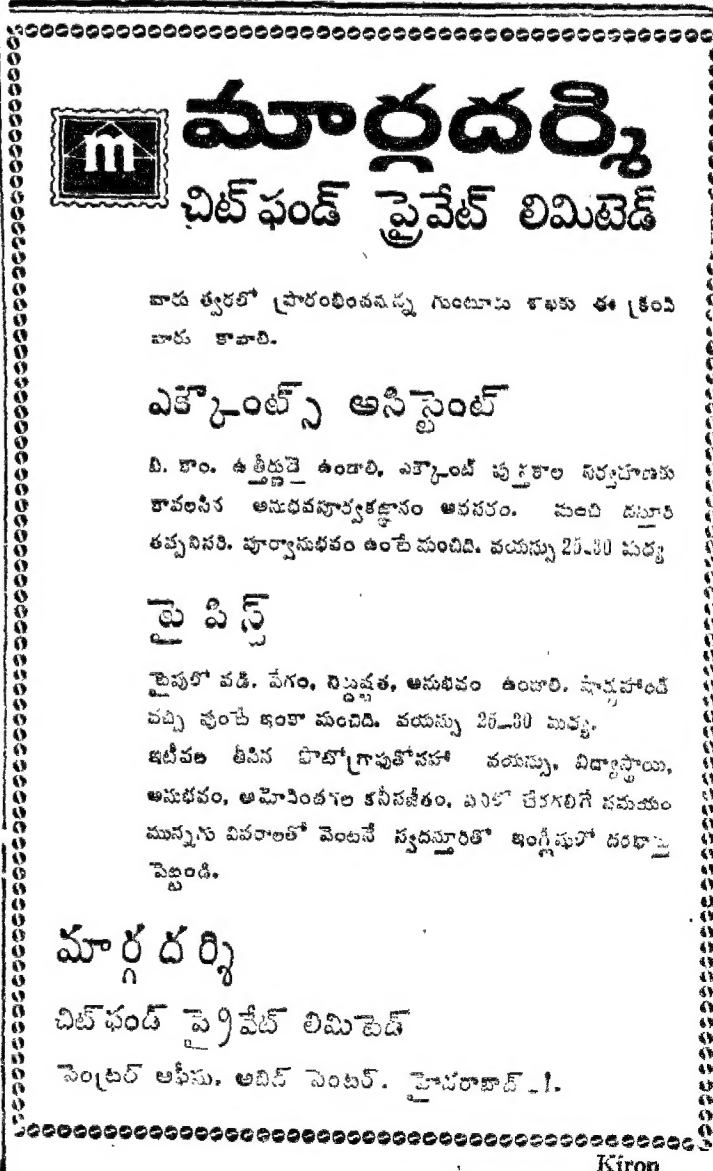 m
మార్గదర్శి
చిట్‌ఫండ్ ప్రైవేట్ లిమిటెడ్
వారు త్వరలో ప్రారంభించనున్న గుంటూరు శాఖకు ఈ క్రింది
వారు కావాలి.
ఎక్కౌంట్స్ అసిస్టెంట్
బి. కాం. ఉత్తీర్ణుడై ఉండాలి, ఎక్కౌంట్ పుస్తకాల నిర్వహణకు
కావలసిన అనుభవపూర్వకజ్ఞానం అవసరం. మంచి దస్తూరి
తప్పనిసరి. పూర్వానుభవం ఉంటే మంచిది. వయస్సు 25-30 మధ్య
టైపిస్ట్
టైపులో వడి. వేగం, నిర్దుష్టత, అనుభవం ఉండాలి. షార్ట్‌హాండ్
వచ్చి వుంటే ఇంకా మంచిది. వయస్సు 25-30 మధ్య.
ఇటీవల తీసిన ఫొటోగ్రాఫుతోసహా వయస్సు, విద్యాస్థాయి,
అనుభవం, కనీసజీతం, చేరగలిగే సమయం
మున్నగు వివరాలతో వెంటనే స్వదస్తూరితో ఇంగ్లీషులో దరఖాస్తు
పెట్టండి.
మార్గదర్శి
చిట్‌ఫండ్ ప్రైవేట్ లిమిటెడ్
సెంట్రల్ ఆఫీసు. అబిద్ సెంటర్. హైదరాబాద్-1.
Kiron